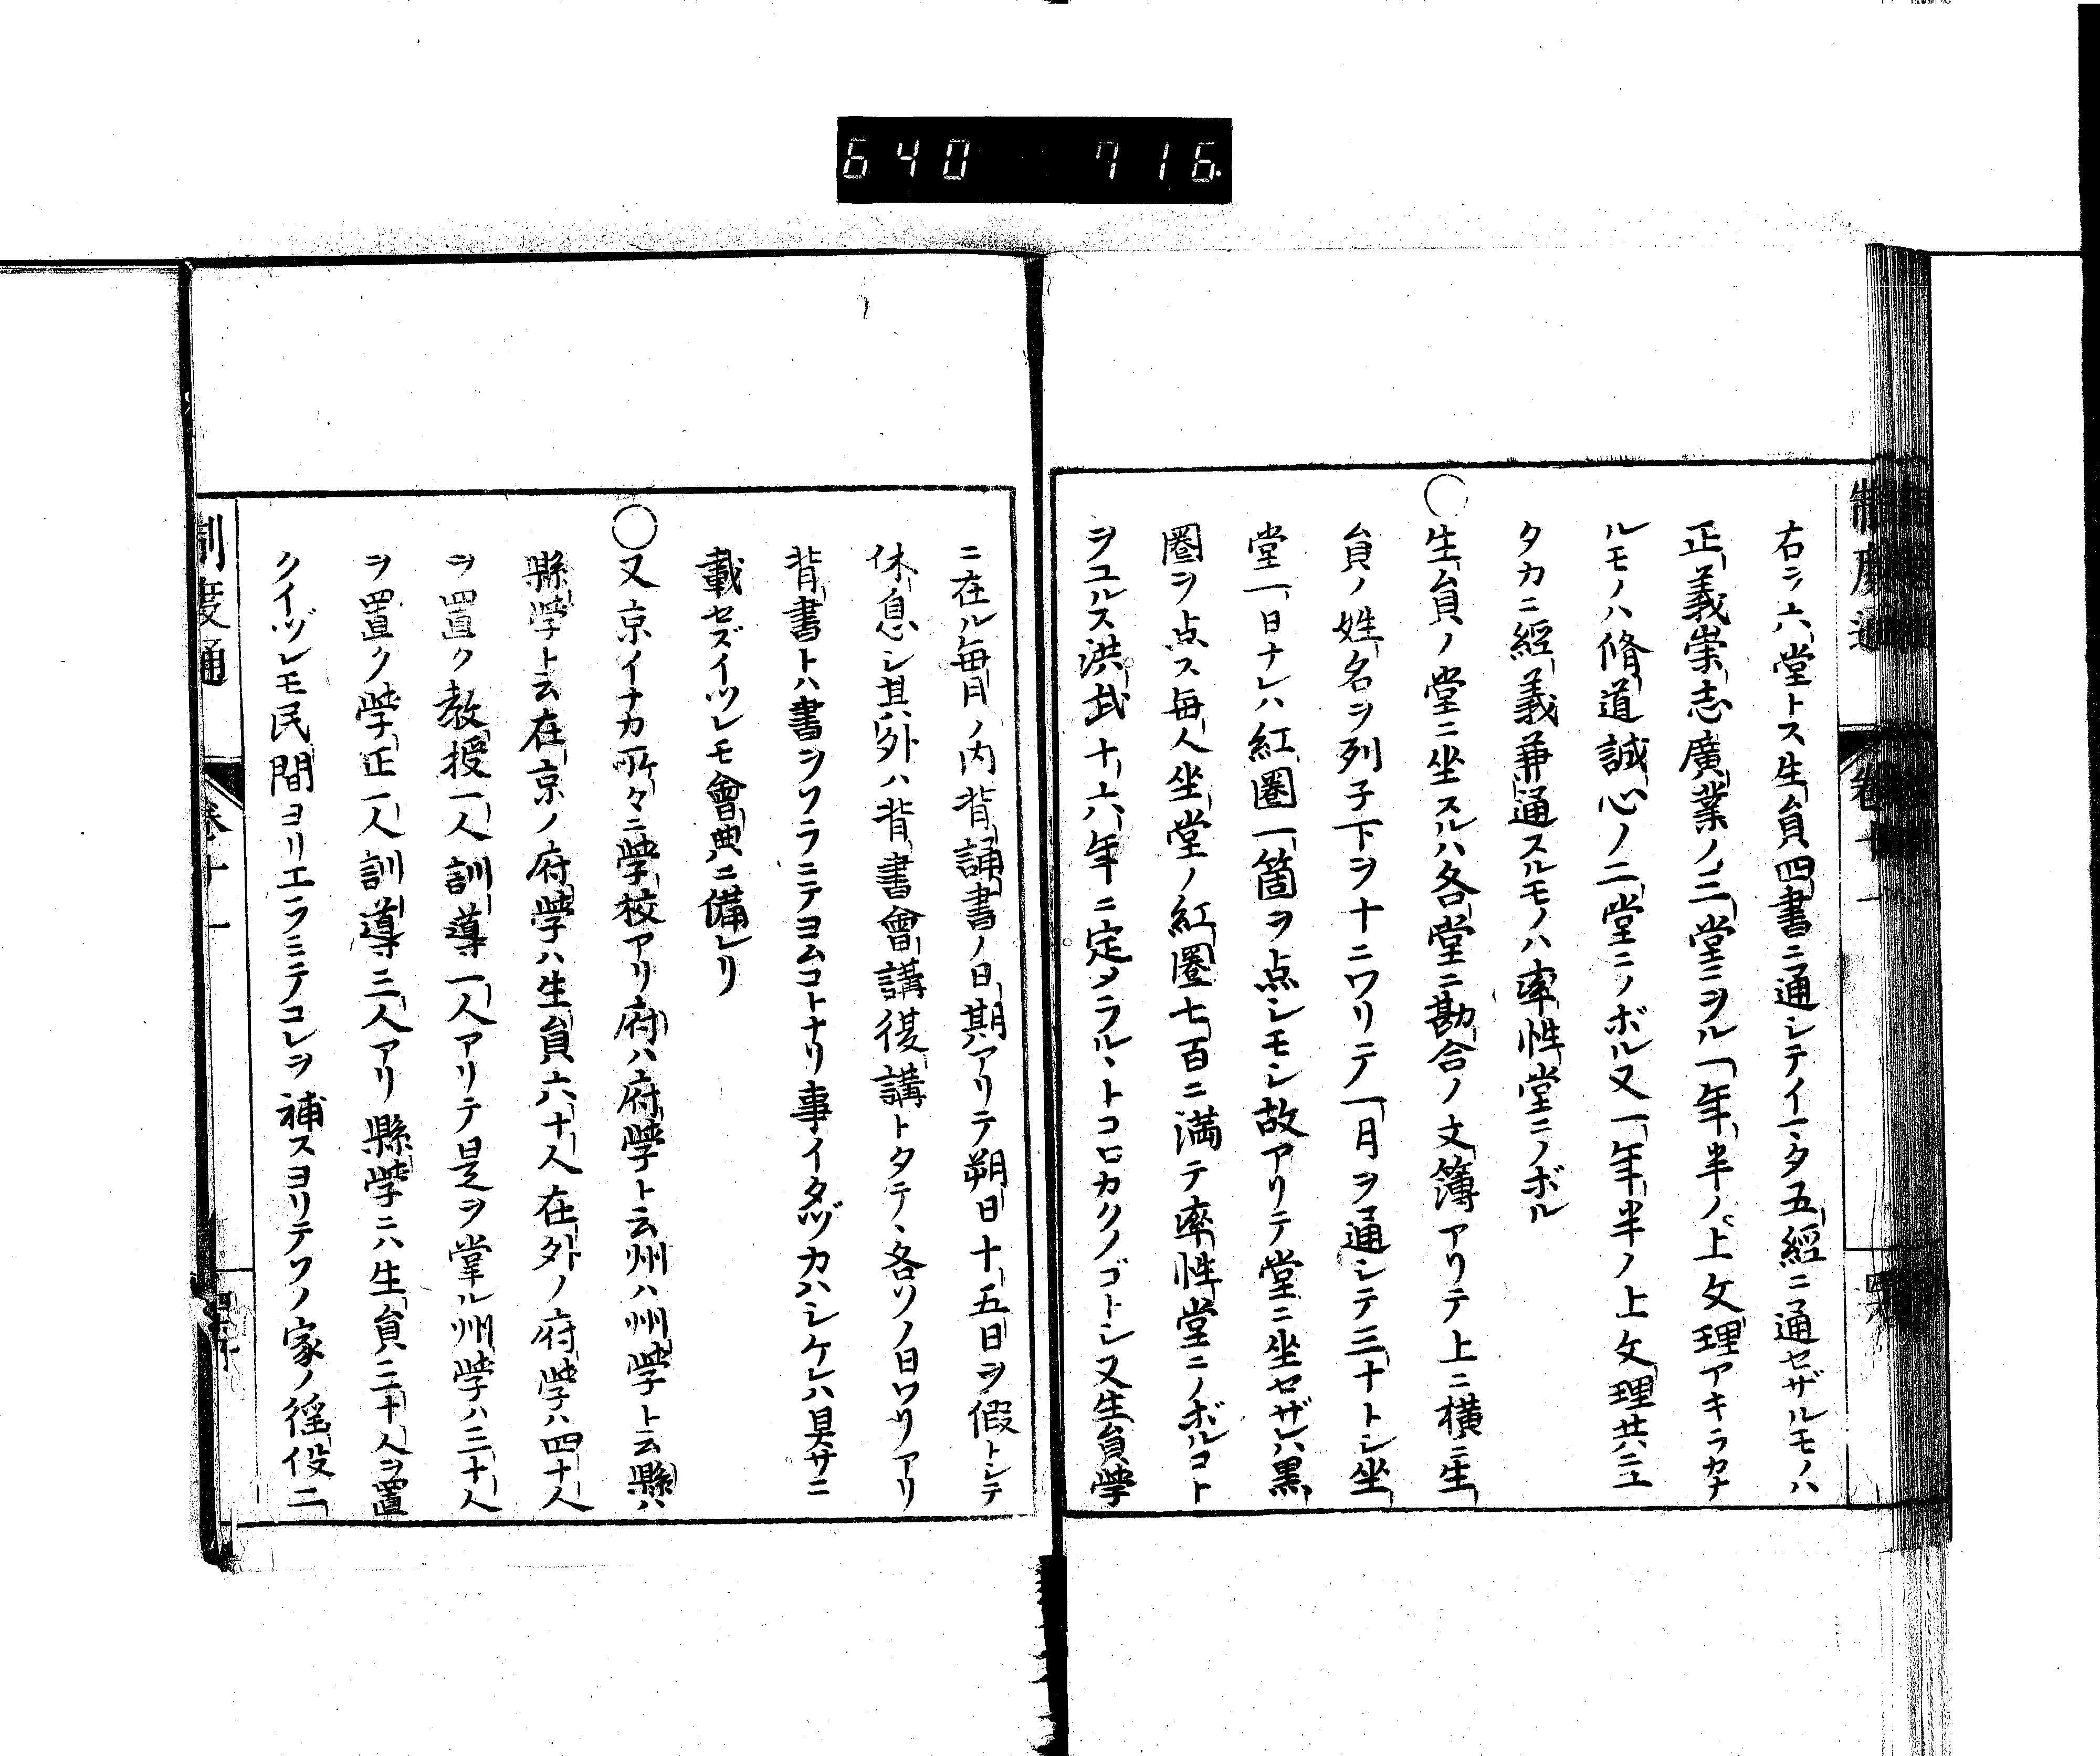 640 716.
制度通 卷十一
右ヲ六堂トス生員四書ニ通シテイマタ五經ニ通セザルモノハ
正義崇志廣業ノ三堂ニヲル一年半ノ上文理アキラカナ
ルモノハ脩道誠心ノ二堂ニノボル又一年半ノ上文理共ニユ
タカニ經義兼通スルモノハ率性堂ニノボル
〇生員ノ堂ニ坐スルハ各堂ニ勘合ノ文簿アリテ上ニ横ニ生
員ノ姓名ヲ列子下ヲ十ニワリテ一月ヲ通シテ三十トシ坐
堂一日ナレハ紅圏一箇ヲ点シモシ故アリテ堂ニ坐セザレハ黒
圏ヲ点ス毎人坐堂ノ紅圏七百ニ満テ率性堂ニノボルコト
ヲユルス洪武十六年ニ定メラルヽトコロカクノゴトシ又生員学
ニ在ル毎月ノ内背誦書ノ日期アリテ朔日十五日ヲ假トシテ
休息シ其外ハ背書會講復講トタテヽ各ソノ日ワリアリ
背書トハ書ヲソラニテヨムコトナリ事イタヅカハシケレハ具サニ
載セズイツレモ會典ニ備レリ
〇又京イナカ所々ニ学校アリ府ハ府学ト云州ハ州学ト云縣ハ
縣学ト云在京ノ府学ハ生員六十人在外ノ府学ハ四十人
ヲ置ク教授一人訓導一人アリテ是ヲ掌ル州学ハ三十人
ヲ置ク学正一人訓導三人アリ縣学ニハ生員二十人ヲ置
クイヅレモ民間ヨリエラミテコレヲ補スヨリテソノ家ノ徭役ニ
制度通 卷十一